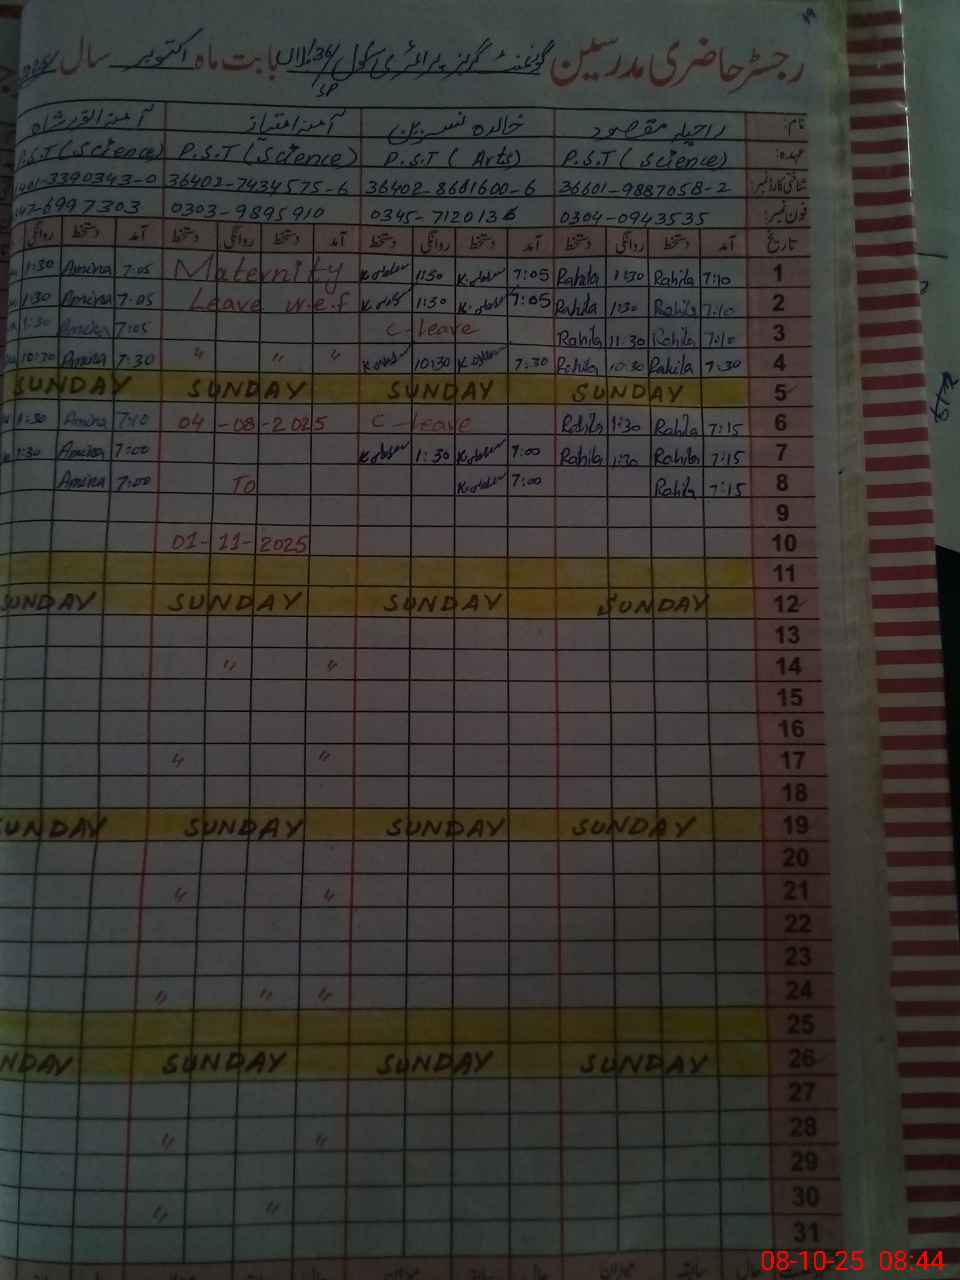 ۱۹
رجسٹر حاضری مدرسین گورنمنٹ گرلز پرائمری سکول 36/SP بابت ماہ اکتوبر سال
نام: راحیلہ مقصود خالدہ نسرین آمنہ امتیاز آمنہ
عہدہ: P.S.T (Science) P.S.T (Arts) P.S.T (Science) P.S.T (Science)
شناختی کارڈ نمبر: 36601-9887058-2 36402-8661600-6 36402-7434575-6 3390343-0
فون نمبر: 0304-0943535 0345-7120136 0303-9895910 6997303
تاریخ آمد دستخط روانگی دستخط آمد دستخط روانگی دستخط آمد دستخط روانگی دستخط آمد دستخط روانگی
1 7:10 Rahila 1:30 Rahila 7:05 1:30 Maternity 7:05 Amina 1:30
2 7:10 Rahila 1:30 Rahila 7:05 1:30 Leave w.e.f 7:05 Amina 1:30
3 7:10 Rahila 11:30 Rahila C-leave 7:05 Amina 1:30
4 7:30 Rahila 10:30 Rahila 7:30 10:30 " " " 7:30 Amina 10:30
5 SUNDAY SUNDAY SUNDAY SUNDAY
6 7:15 Rahila 1:30 Rahila C-leave 04-08-2025 7:10 Amina 1:30
7 7:15 Rahila 1:30 Rahila 7:00 1:30 7:00 Amina 1:30
8 7:15 Rahila 7:00 To 7:00 Amina
9
10 01-11-2025
11
12 SUNDAY SUNDAY SUNDAY SUNDAY
13
14 " "
15
16
17 " "
18
19 SUNDAY SUNDAY SUNDAY SUNDAY
20
21 " "
22
23
24 " " "
25
26 SUNDAY SUNDAY SUNDAY NDAY
27
28 " "
29
30 " "
31
08-10-25 08:44